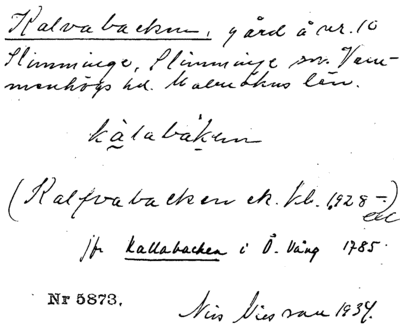 Kalvabacken, gård å nr. 10
Slimminge, Slimminge sn. Vem-
menhögs hd. Malmöhus län.
kàlabáken
(Kalfvabacken ek. kbl. 1928 –
jfr Kallabacken i Ö. Vång 1785.
Nr 5873. Nils 1934.